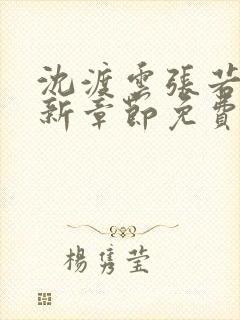 沈渡雲張若
新章節免費
楊雋瑩